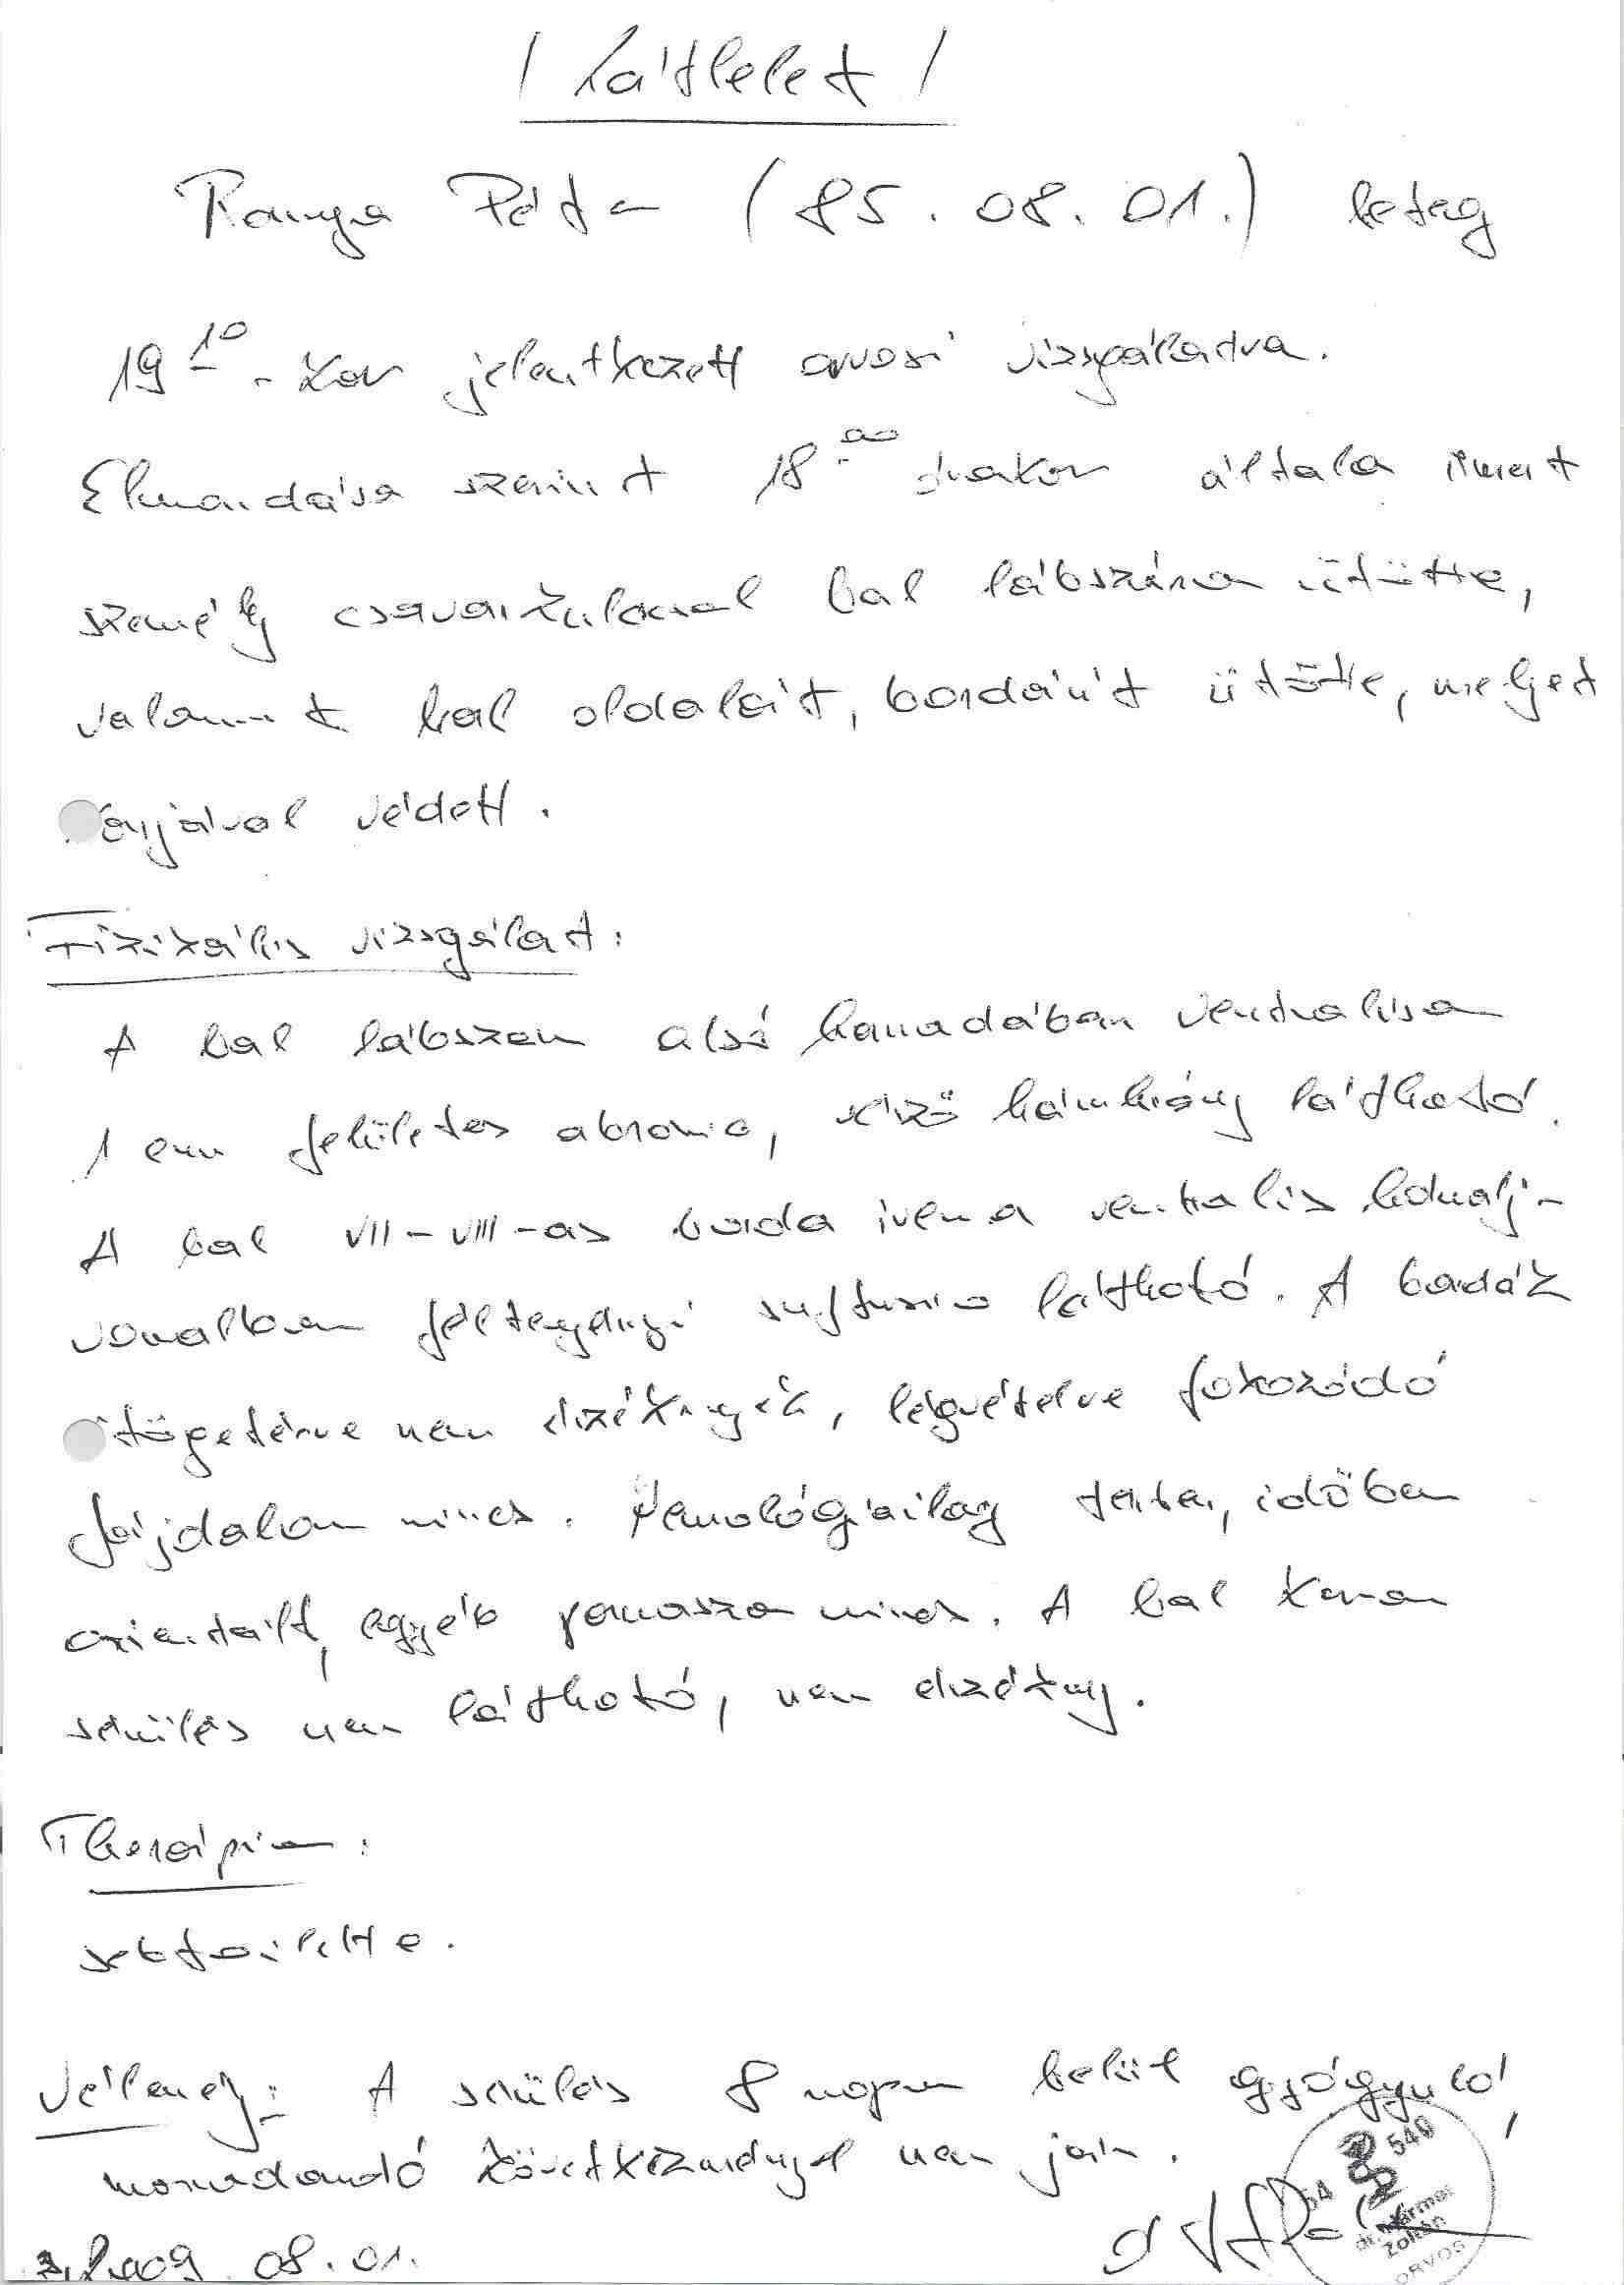 / Látlelet /
Ranga Péter (85. 08. 01.) beteg
19 10 - kor jelentkezett orvosi vizsgálatra.
Elmondása szerint 18 00 órakor általa ismert
személy csavarkulccsal bal lábszárra ütötte,
valamint bal oldalát, bordáit ütötte, melyet
karjával védett.
Fizikális vizsgálat:
A bal lábszár alsó harmadában ventralisan
1 cm felületes abrasio, hámhiány látható.
A bal VII-VIII-as borda ívén a ventralis hónalj-
vonalban féltenyérnyi suffusio látható. A bordák
ütögetésre nem érzékenyek, légvételre fokozódó
fájdalom nincs. Neurológiailag tiszta, időben
orientált, egyéb panasza nincs. A bal karon
sérülés nem látható, nem érzékeny.
Therápia:
sebtoilette.
Vélemény: A sérülés 8 napon belül gyógyuló,
maradandó következménnyel nem jár.
2009. 08. 01.
54 540
Zoltán
ORVOS